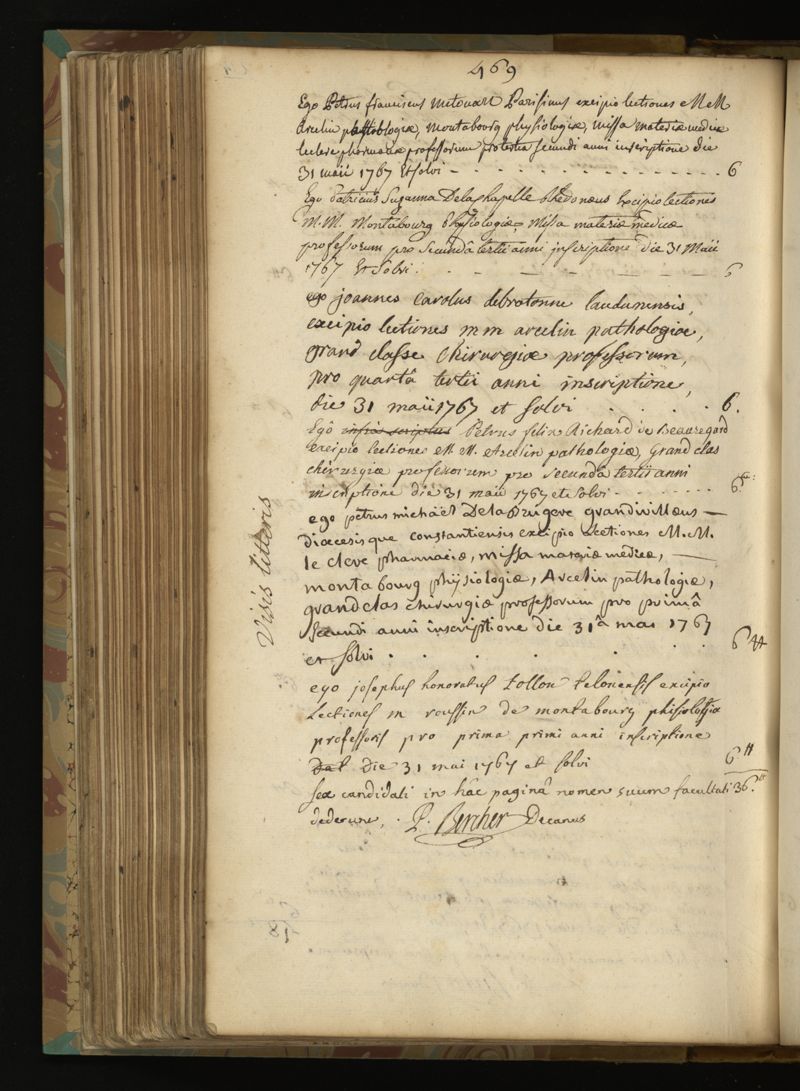 469
Ego Petrus franciscus metouart Parisinus excipio lectiones M M
Arcelin pathologiæ, montabourg physiologiæ, missa materiæ medicæ
leclerc pharmaciæ professorum pro tertia secundi anni inscriptione die
31 maii 1767 Et solvi - - - - - - - - - - - - - 6
Ego Patricius Suzanna Delachapelle Excipio lectiones
M.M. Montabourg Physiologiæ, Missa materiæ medicæ
professorum pro secundâ tertii anni inscriptione die 31 Maii
1767 Et Solvi. - - - - - 6
ego joannes carolus debrotonne laudunensis,
excipio lectiones m m arcelin pathologiæ,
grand classe chirurgiæ professorum,
pro quartâ tertii anni inscriptione,
die 31 maii 1767 et solvi . . . . 6.
Ego infra scriptus Petrus felix Richard de Beauregard
excipio lectiones M. M. Arcelin pathologiæ, Grand clas
chirurgiæ professorum pro secundâ tertii anni
inscriptione die 31 maii 1767 et solvi - - - - - - 6
ego petrus michaël Delabrugere grandivilleus —
diocesisque constantiensis excipio lectiones M. M.
le clerc pharmaciæ, missa materiæ medicæ, —
montabourg physiologiæ, Arcelin pathologiæ,
grandclas chirurgiæ professorum pro primâ
secundi anni inscriptione die 31â mai 1767
et solvi . . . . . . 6 ₶
Visis litteris
ego josephus honoratus tollon telonensis excipio
lectiones m roussin de montabourg phisiologiæ
professoris pro prima primi anni inscriptione
Dat Die 31 mai 1767 et solvi 6 ₶
sex candidati in hâc paginâ nomen suum facultati 36.₶
dederunt, . P. Bercher Decanus